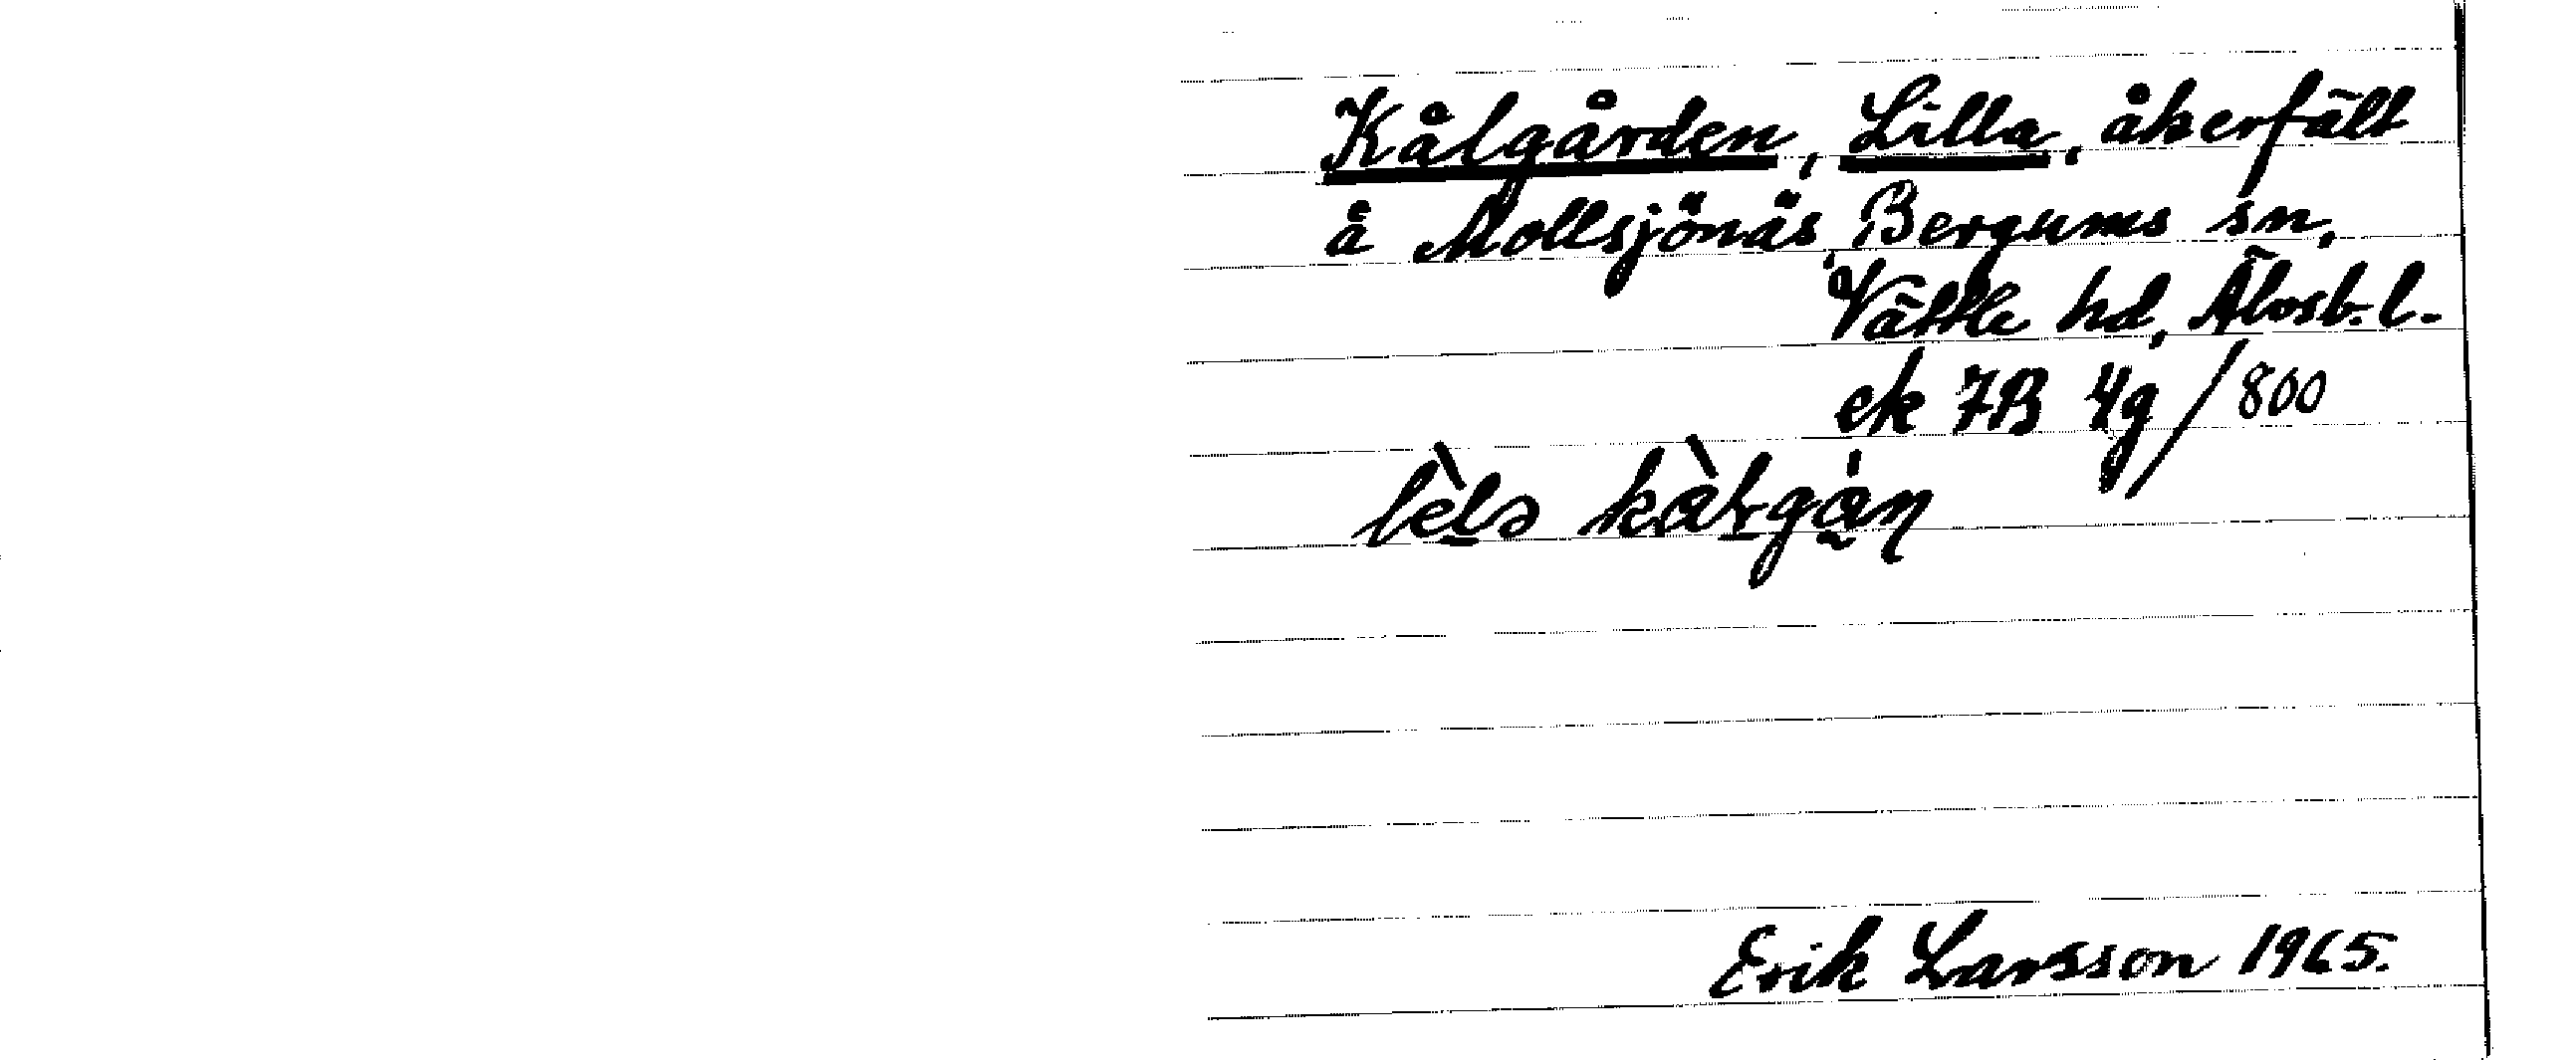 Kålgården, Lilla, åkerfält
å Mollsjönäs, Bergums sn,
Vättle hd, Älvsb. l.
ek 7B 4g / 800
Erik Larsson 1965.